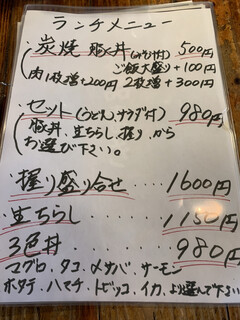 ランチメニュー
・炭焼豚丼(みそ汁付) 500円
(ご飯大盛り+100円
肉1枚増+200円 2枚増+300円
・セット(うどん、サラダ付) 980円
(豚丼、生ちらし、握り、から
お選び下さい。
・握り盛り合せ‥‥1600円
・生ちらし・・・・・1150円
・3色丼・・・・・980円
マグロ、タコ、〆サバ、サーモン
ホタテ、ハマチ、トビッコ、イカ、より選んで下さい